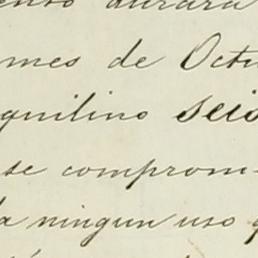 ento durará
mes de Octu
quilino seis
se comprom
da ningun uso